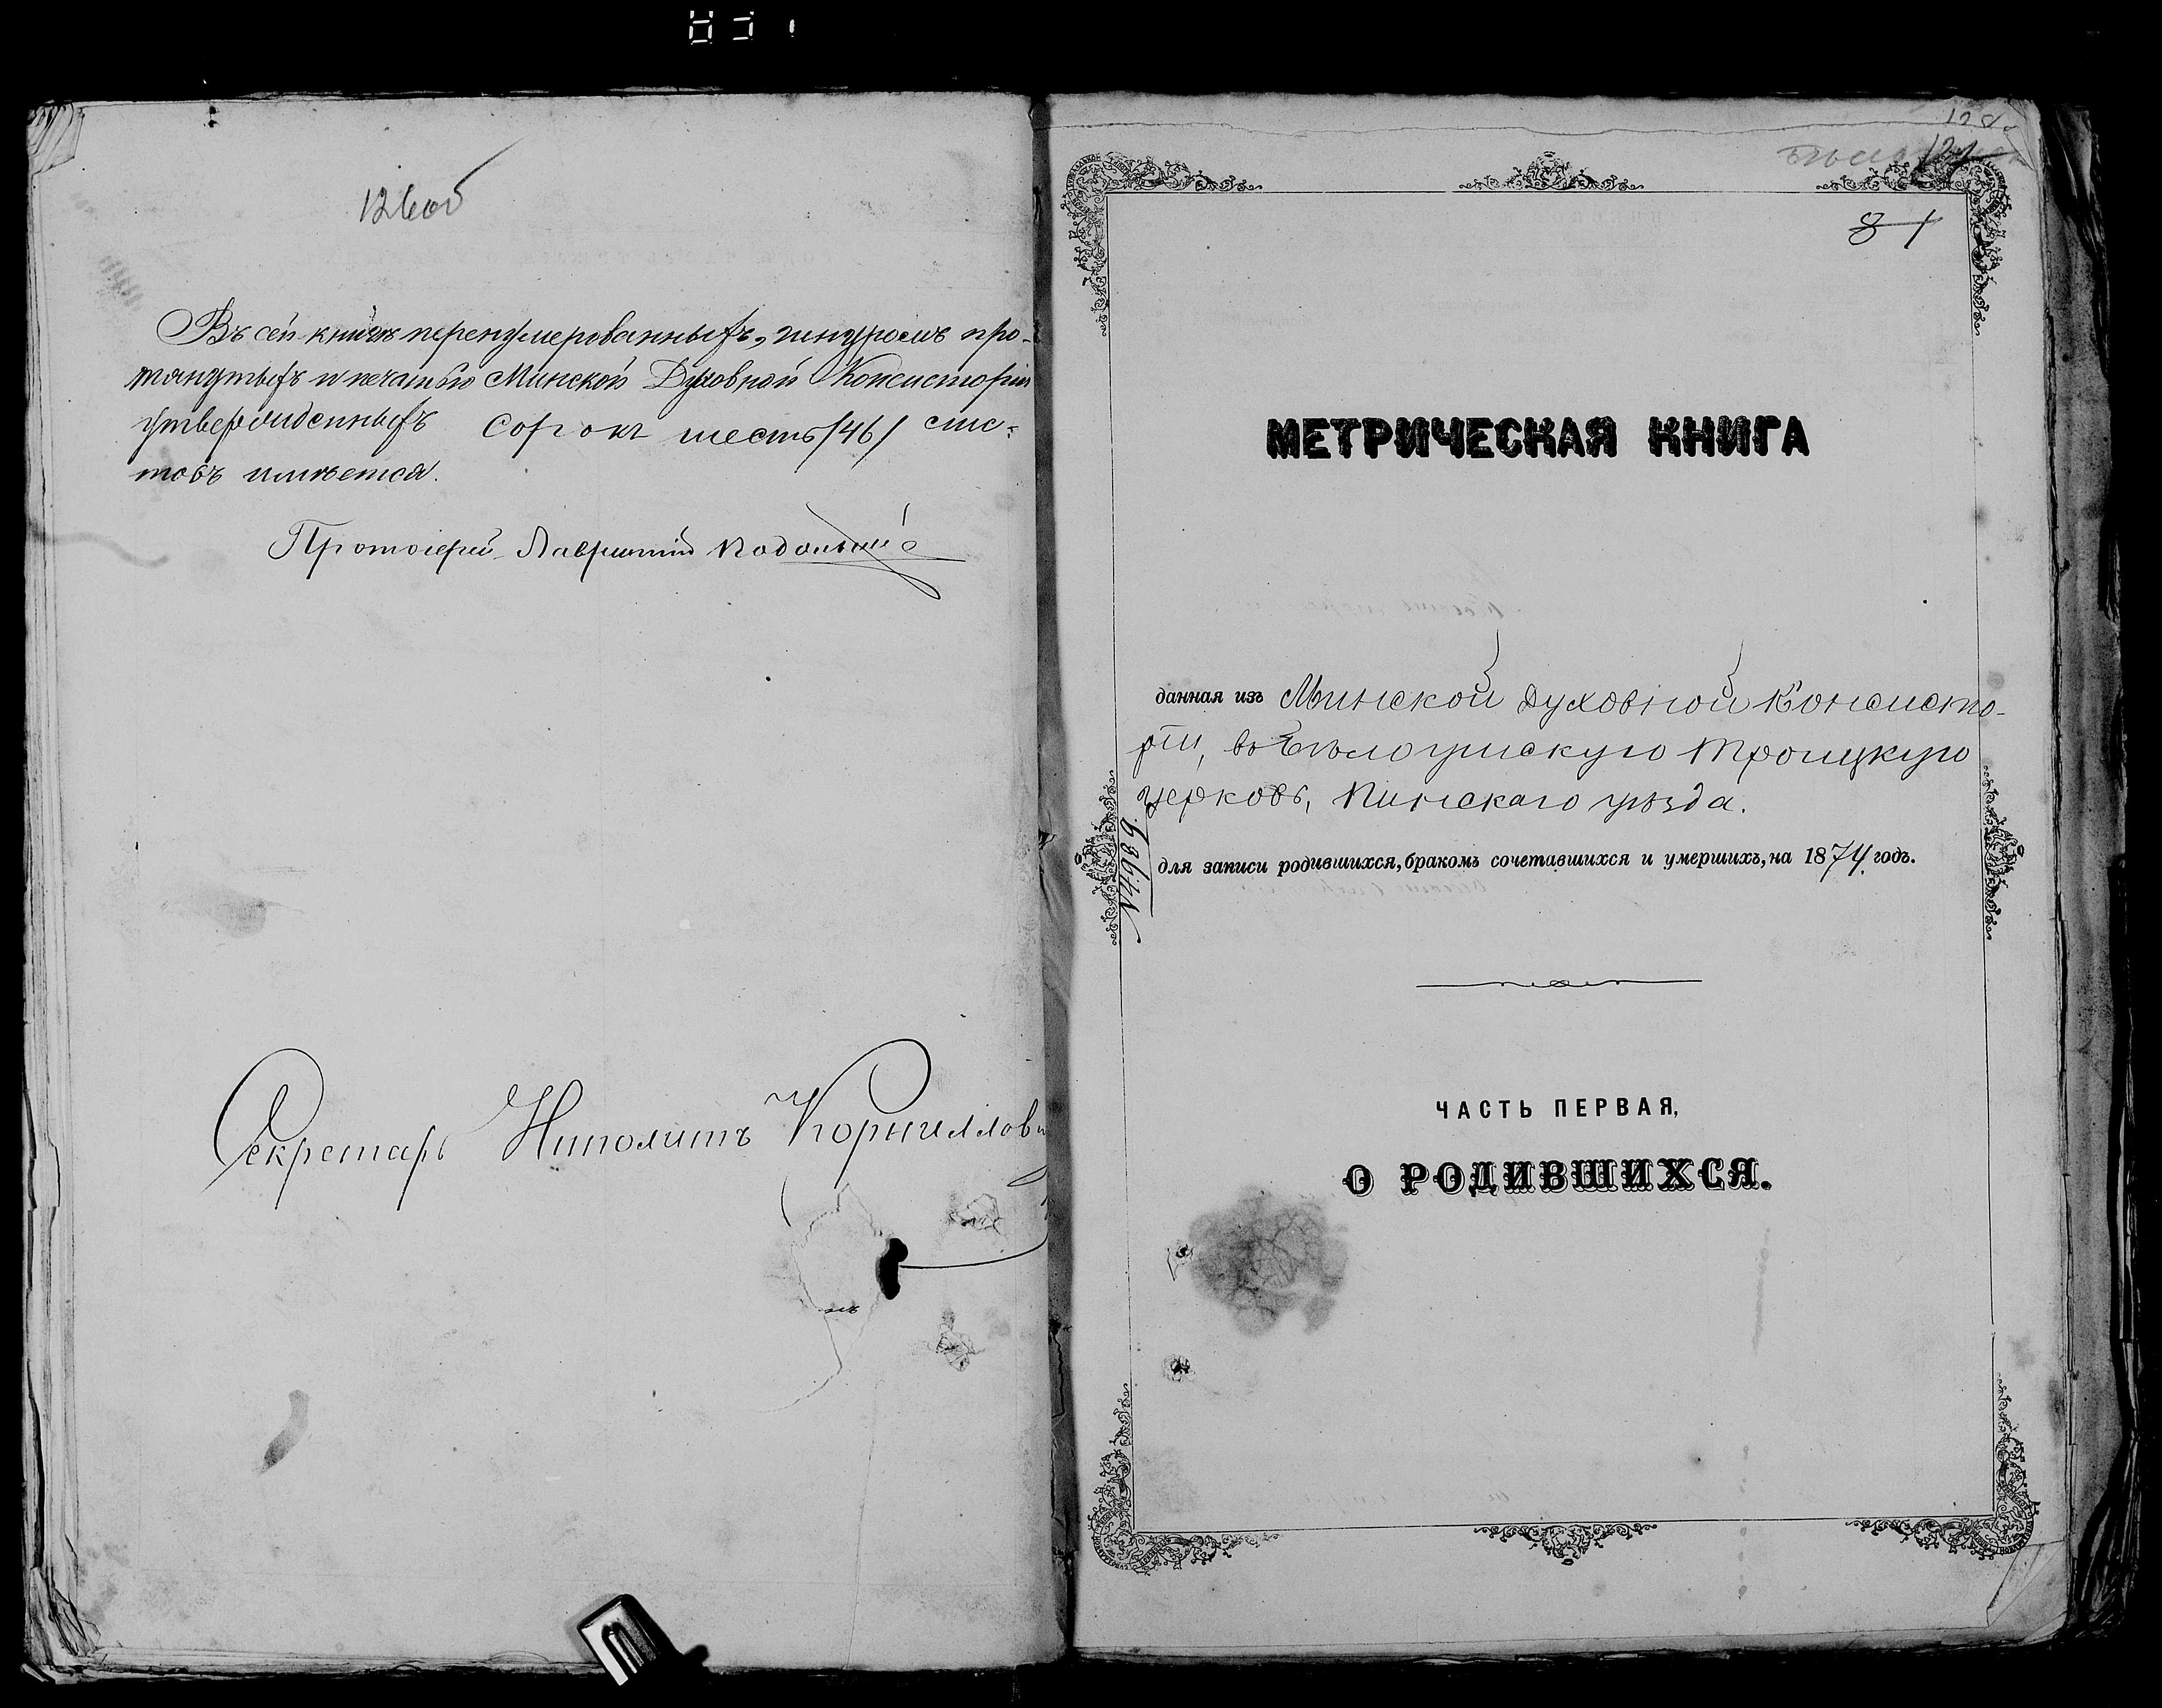 126об
Въ сей книгѣ перенумерованныхъ, шнуромъ про-
тянутыхъ и печатью Минской Духовной Консисторіи
утвержденныхъ сорокъ шесть /46/ лис-
товъ имѣется.
Протоіерей Лаврентій
Секретарь Иполитъ Корнилловъ
127
81
МЕТРИЧЕСКАЯ КНИГА
данная изъ Минской Духовной Консисто-
ріи, въ Бѣлоушскую Троицкую
церковь, Пинскаго уѣзда.
№ 4989.
для записи родившихся, бракомъ сочетавшихся и умершихъ, на 1874 годъ.
ЧАСТЬ ПЕРВАЯ,
О РОДИВШИХСЯ.